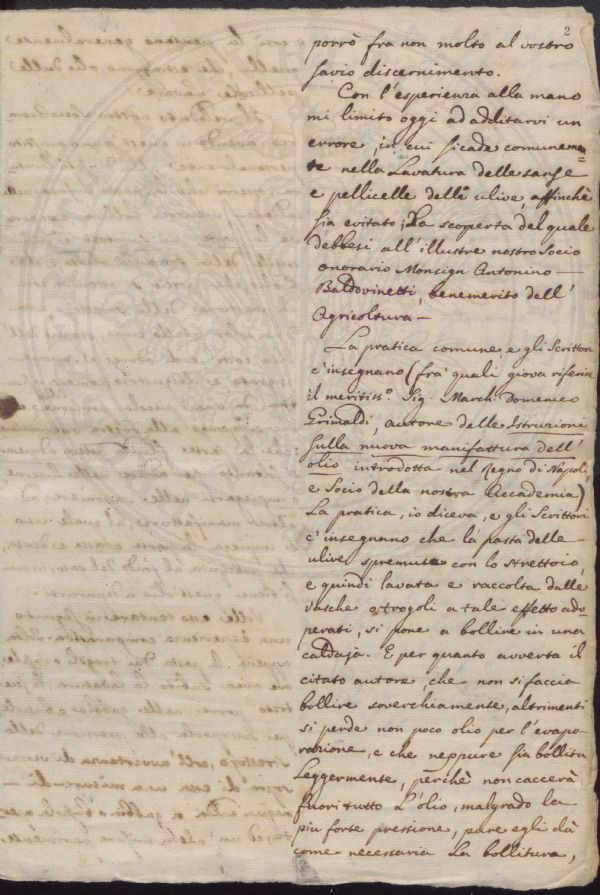 2
porrò fra non molto al vostro
savio discernimento.
Con l'esperienza alla mano
mi limito oggi ad additarvi un
errore, in cui si cade comunemen=
te nella Lavatura delle sanse
e pellicelle delle ulive, affinchè
sia evitato; La scoperta del quale
debbesi all'illustre nostro Socio
onorario Monsign Antonino —
Baldovinetti, benemerito dell'
Agricoltura —
La pratica comune, e gli Scrittori
c'insegnano (fra' quali giova riferire
il meritiss.o Sig. March. Domenico
Grimaldi, autore delle Istruzioni
sulla nuova manifattura dell'
olio introdotta nel Regno di Napoli,
e Socio della nostra Accademia)
La pratica, io diceva, e gli Scrittori
c'insegnano che la pasta delle
ulive spremute con lo strettoio,
e quindi lavata e raccolta dalle
vasche o trogoli a tale effetto ado=
perati, si pone a bollire in una
caldaja. E per quanto avverta il
citato autore, che non si faccia
bollire soverchiamente, altrimenti
si perde non poco olio per l'evapo=
razione, e che neppure sia bollita
Leggermente, perchè non caccerà
fuori tutto L'olio, malgrado la
piu forte pressione, pure egli dà
come necessaria La bollitura,